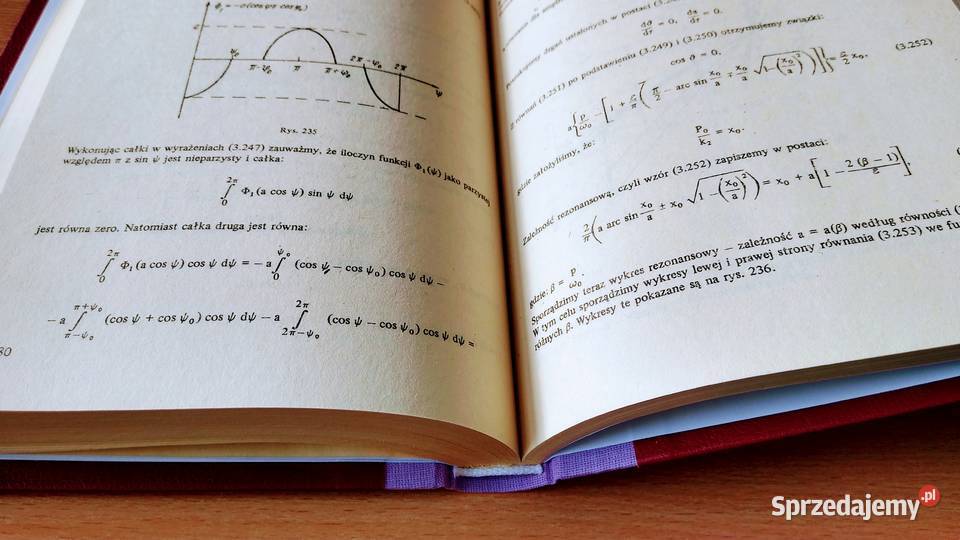 Φ₁ = -c(cos ψ - cos ψ₀)
c
ψ₀ π-ψ₀ π π+ψ₀ 2π-ψ₀ 2π ψ
Rys. 235
Wykonując całki w wyrażeniach (3.247) zauważmy, że iloczyn funkcji Φ₁(ψ) jako parzystej
względem π z sin ψ jest nieparzysty i całka:
∫₀^{2π} Φ₁(a cos ψ) sin ψ dψ
jest równa zero. Natomiast całka druga jest równa:
∫₀^{2π} Φ₁(a cos ψ) cos ψ dψ = -a ∫₀^{ψ₀} (cos ψ - cos ψ₀) cos ψ dψ -
-a ∫_{π-ψ₀}^{π+ψ₀} (cos ψ + cos ψ₀) cos ψ dψ - a ∫_{2π-ψ₀}^{2π} (cos ψ - cos ψ₀) cos ψ dψ =
80
drgań ustalonych w postaci (3.2
dϑ/dτ = 0, da/dτ = 0.
równań (3.251) po podstawieniu (3.249) i (3.250) otrzymujemy związki:
cos ϑ = 0,
(3.252)
gdzie założyliśmy, że:
p₀/k₂ = x₀.
Zależność rezonansową, czyli wzór (3.252) zapiszemy w postaci:
2/π (a arc sin x₀/a ± x₀ √(1-(x₀/a)²)) = x₀ + a[1 - 2(β-1)/ε],
gdzie: β = p/ω₀.
Sporządzimy teraz wykres rezonansowy – zależność a = a(β) według równości (3
W tym celu sporządzimy wykresy lewej i prawej strony równania (3.253) we fu
różnych β. Wykresy te pokazane są na rys. 236.
Sprzedajemy.pl